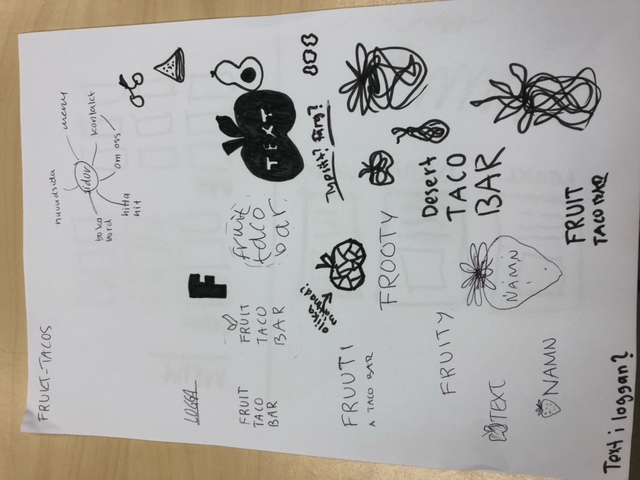 FRUKT-TACOS
huvudsida
meny
sidor
kontakt
boka
bord
om oss
hitta
hit
LOGGA
F
FRUIT
TACO
BAR
FRUIT
TACO
BAR
fruit
taco
bar
TEXT
olika
Typsitt? Färg?
FRUUTI
A TACO BAR
FROOTY
FRUITY
Desert
TACO
BAR
TEXT
NAMN
NAMN
FRUIT
TACO BAR
Text i loggan?